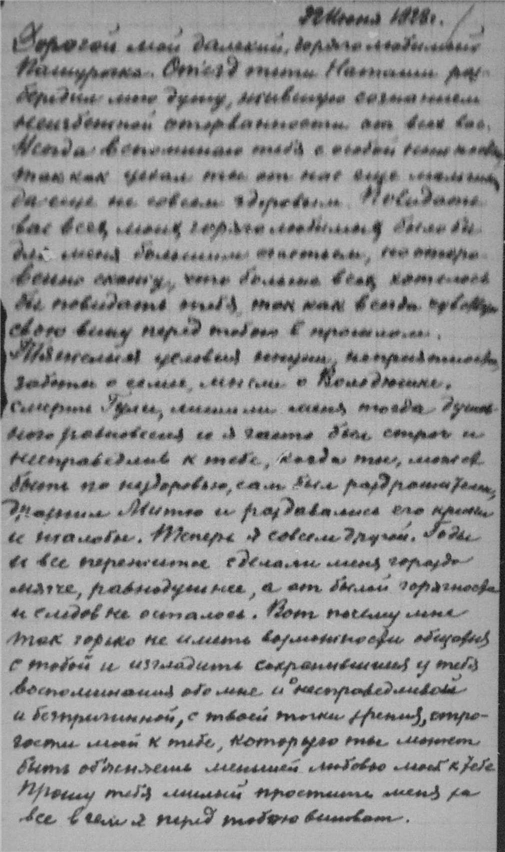 22 Июня 1928 г.
Дорогой мой далекий, горячо любимый
Пашурочка. Отъезд тети Наташи раз-
бередил мою душу, нывшую сознанием
неизбежной оторванности от всех вас.
Всегда вспоминаю тебя с особой
так как уехал ты от нас еще мальчиком,
да еще не совсем здоровым. Повидать
вас всех моих горячо любимых было бы
для меня большим счастьем, но откро-
венно скажу, что больше всех хотелось
бы повидать тебя, так как всегда чувствую
свою вину перед тобою в прошлом.
Тяжелыя условия жизни, неприятности,
заботы о семье, мысли о Володюшке,
смерть Гули, лишили меня тогда душев-
ного равновесия и я часто был строг и
несправедлив к тебе, когда ты, может
быть по нездоровью, сам был раздражителен,
дразнил Митю и раздавались его крики
и жалобы. Теперь я совсем другой. Годы
и все пережитое сделали меня гораздо
мягче, равнодушнее, а от былой горячности
и следов не осталось. Вот почему мне
так горько не иметь возможности общения
с тобой и изгладить сохранившияся у тебя
воспоминания обо мне и о несправедливой
и безпричинной, с твоей точки зрения, стро-
гости моей к тебе, которую ты может
быть объясняешь меньшей любовью моей к тебе.
Прошу тебя милый простить меня за
все в чем я перед тобою виноват.